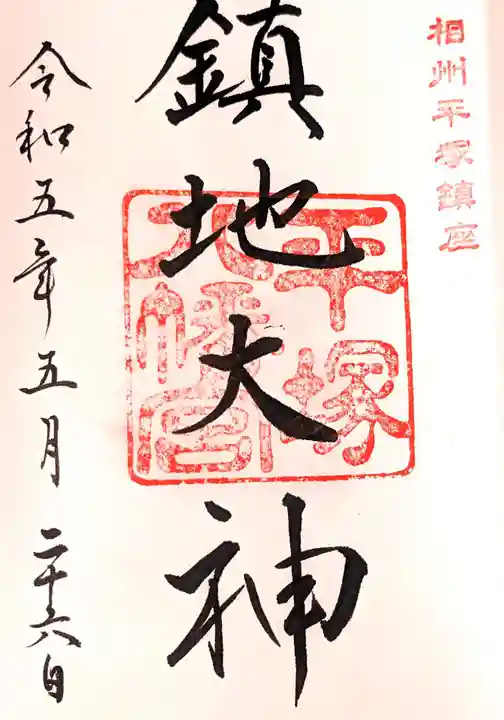 相州平塚鎮座
鎮地大神
平塚
八幡宮
令和五年五月二十六日